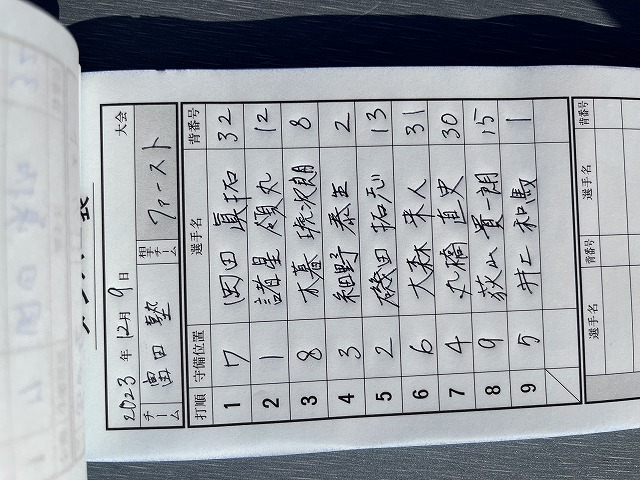 2023年12月9日 大会
チーム 富田塾 相手チーム ファースト
打順 守備位置 選手名 背番号
1 7 岡田 眞拓 32
2 1 諸星 領丸 12
3 8 木暮 琉次朗 8
4 3 細野 泰生 2
5 2 磯田 拓志 13
6 6 大森 来人 31
7 4 丸橋 直史 30
8 9 荻山 貴一朗 15
9 5 井上 和馬 1
選手名 背番号
選手名 背番号